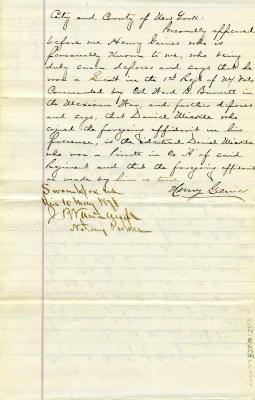 City and County of New York:
Personally appeared
before me Henry Gaines who is
personally known to me, who being
duly sworn deposes and says that he
was a Lieut in the 1st Regt of NY Vols
Commanded by Col Ward B. Burnett in
the Mexican War, and further deposes
and says, that Daniel Mickle who
signed the foregoing affidavit in his
presence, is the identical Daniel Mickle
who was a Private in Co. A of said
Regiment and that the foregoing affidavit
as made by him is true
Henry Gaines
Sworn before me
this 10 May 1871
Notary Public